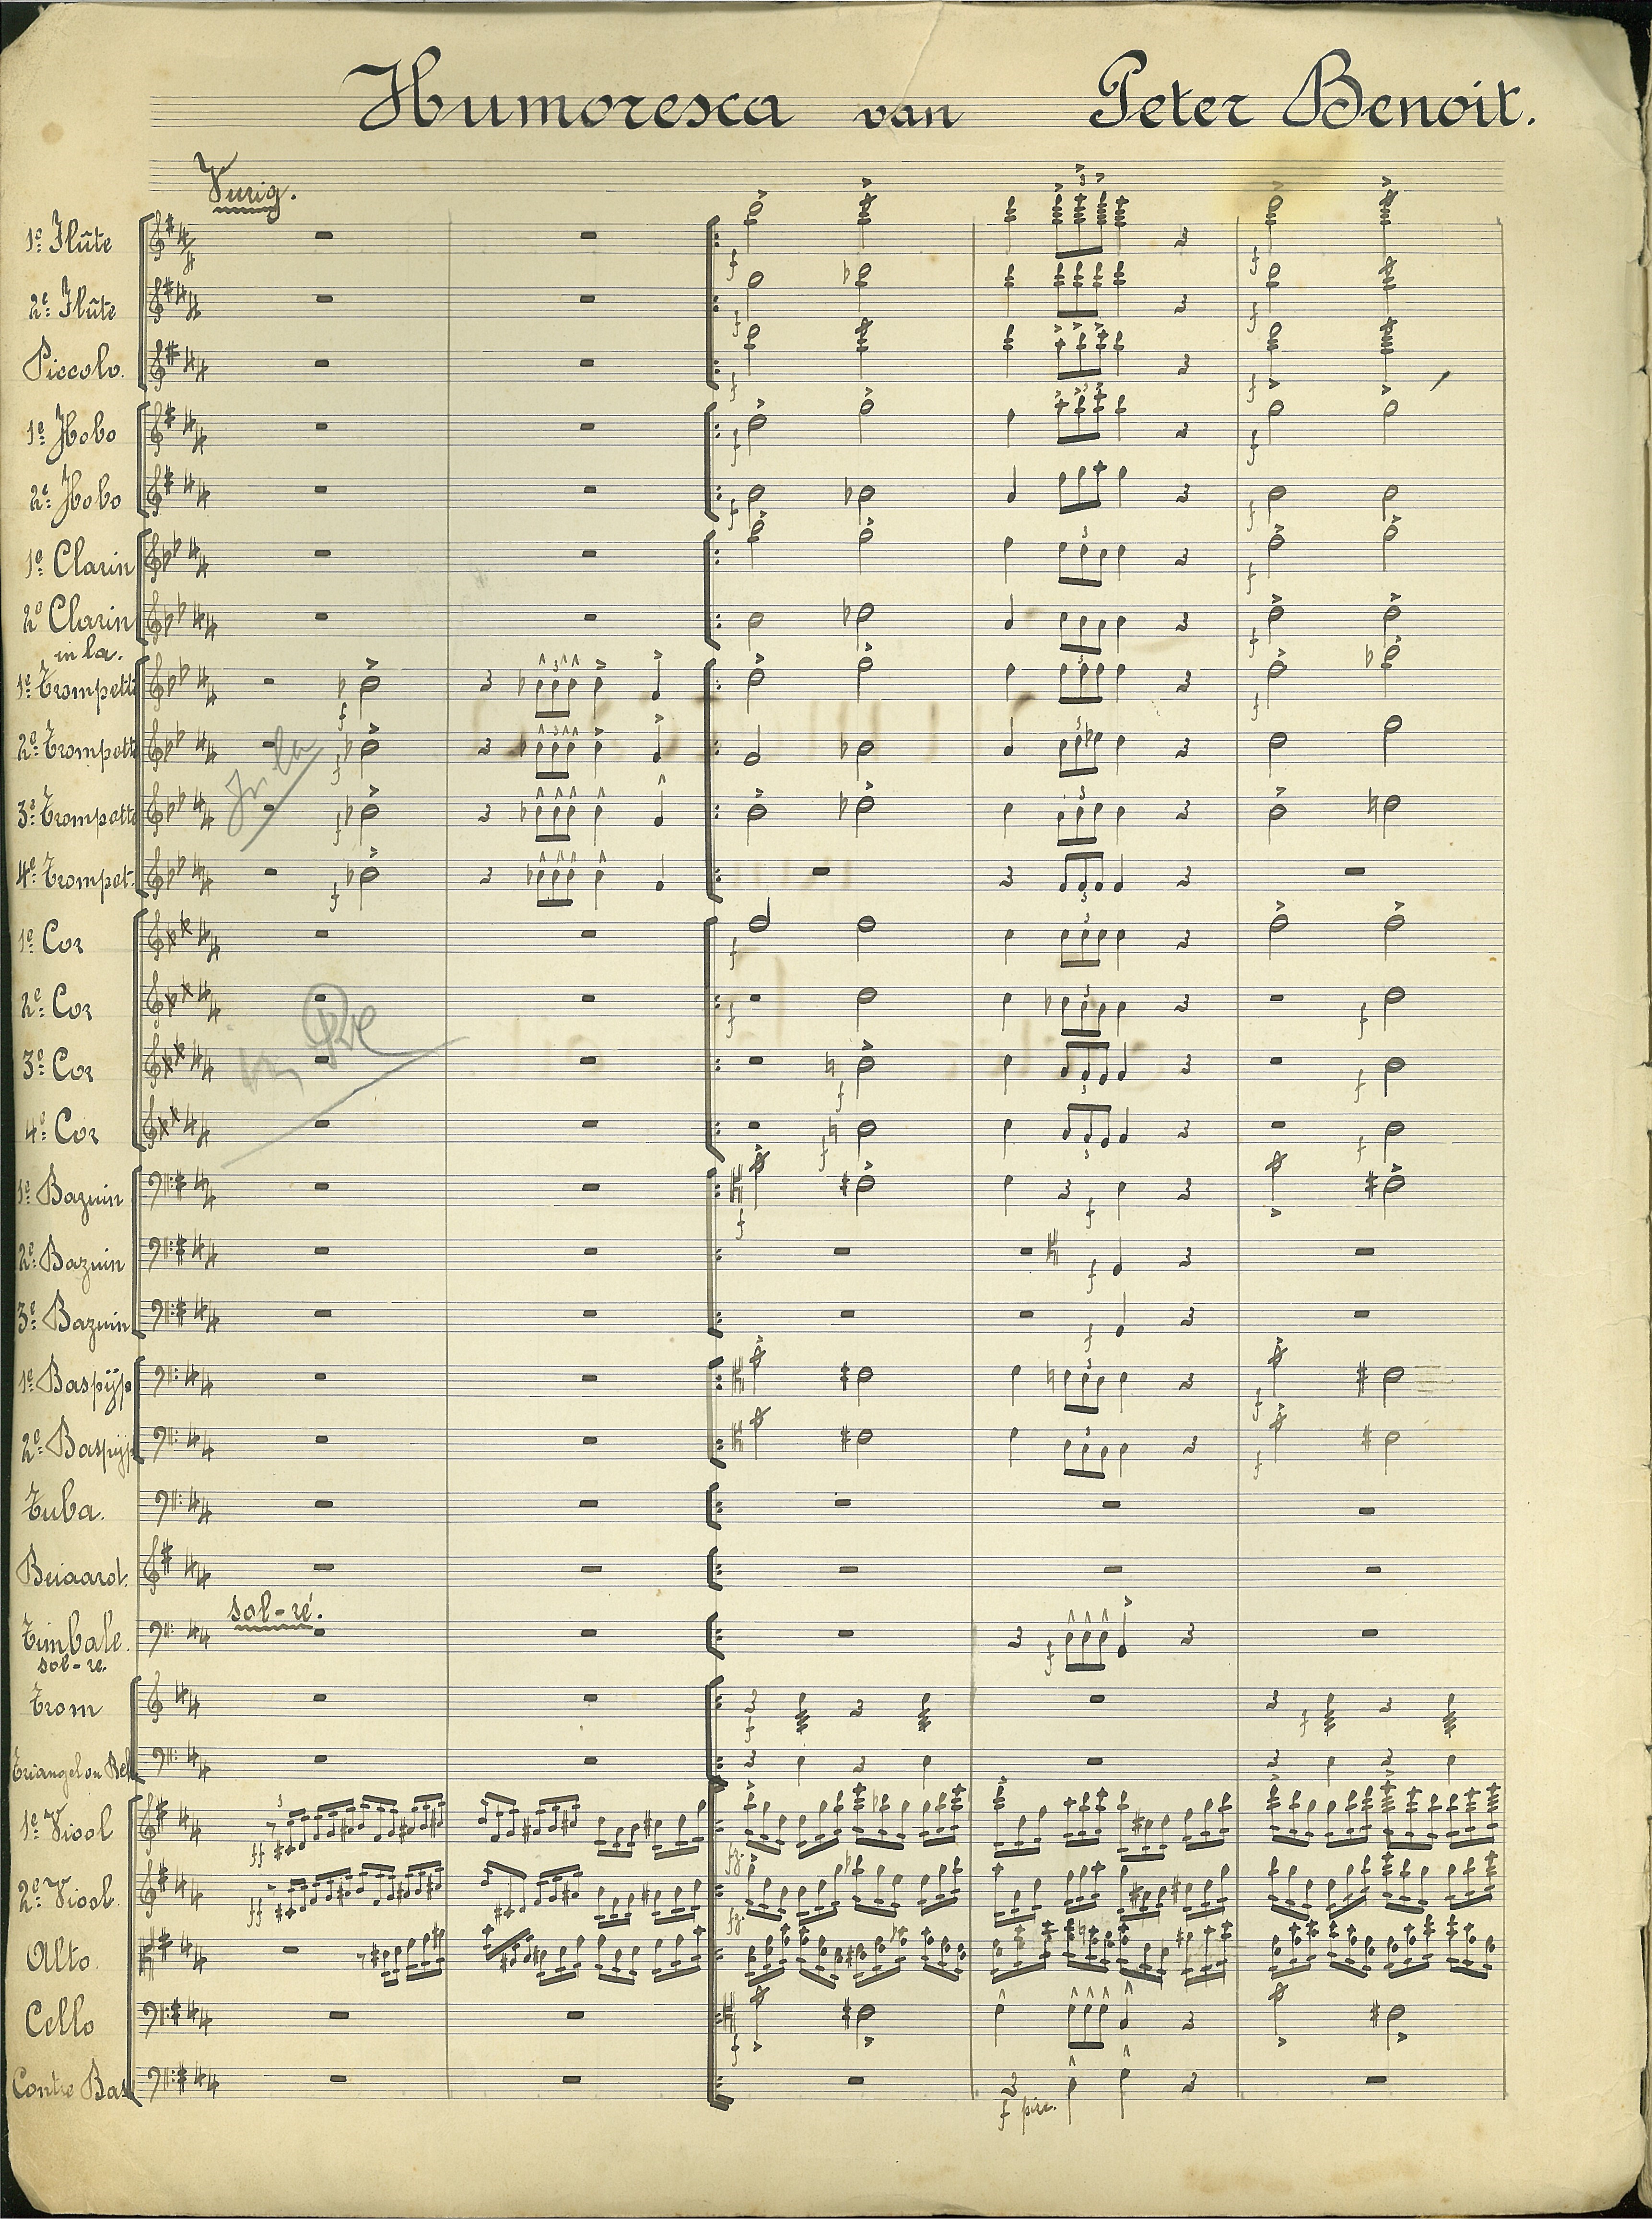 Humoresca van Peter Benoit.
Vurig.
1e Flûte
2e Flûte
Piccolo.
1e Hobo
2e Hobo
1e Clarin
2e Clarin
in la.
1e Trompett
2e Trompett
In la
3e Trompett
4e Trompet.
1e Cor
2e Cor
3e Cor
4e Cor
1e Bazuin
2e Bazuin
3e Bazuin
1e Baspyp
2e Baspyp
Tuba.
Beiaard.
sol-ré.
Timbale.
sol-re.
Trom
Triangel en Bek
1e Viool
2e Viool.
Alto.
Cello
Contre Bas
f piz.